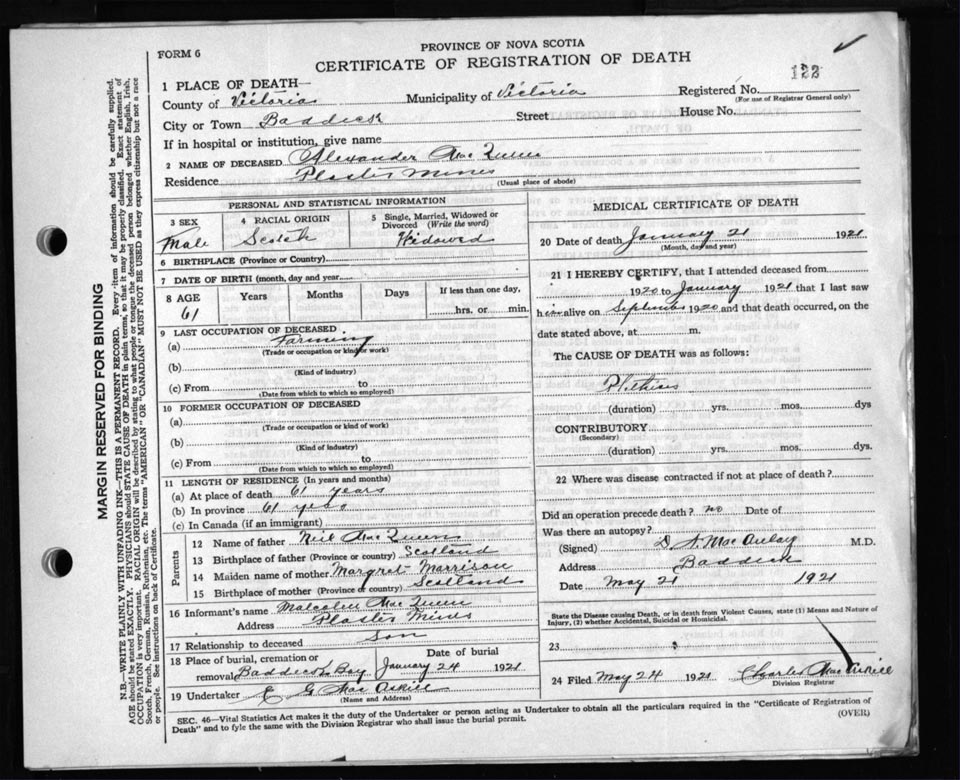 FORM 6
PROVINCE OF NOVA SCOTIA
CERTIFICATE OF REGISTRATION OF DEATH
122
1 PLACE OF DEATH—
County of Victoria Municipality of Victoria Registered No.
(For use of Registrar General only)
City or Town Baddeck Street House No.
If in hospital or institution, give name
2 NAME OF DECEASED Alexander Mac Queen
Residence Plaster Mines
(Usual place of abode)
PERSONAL AND STATISTICAL INFORMATION
3 SEX 4 RACIAL ORIGIN 5 Single, Married, Widowed or Divorced (Write the word)
Male Scotch Widowed
6 BIRTHPLACE (Province or Country)
7 DATE OF BIRTH (month, day and year)
8 AGE Years Months Days If less than one day,
61 hrs. or min.
9 LAST OCCUPATION OF DECEASED
(a) Farming
(Trade or occupation or kind of work)
(b)
(Kind of industry)
(c) From to
(Date from which to which so employed)
10 FORMER OCCUPATION OF DECEASED
(a)
(Trade or occupation or kind of work)
(b)
(Kind of industry)
(c) From to
(Date from which to which so employed)
11 LENGTH OF RESIDENCE (In years and months)
(a) At place of death 61 years
(b) In province 61 years
(c) In Canada (if an immigrant)
Parents
12 Name of father Neil Mac Queen
13 Birthplace of father (Province or country) Scotland
14 Maiden name of mother Margret Morrison
15 Birthplace of mother (Province or country) Scotland
16 Informant's name Malcolm Mac Queen
Address Plaster Mines
17 Relationship to deceased Son
18 Place of burial, cremation or removal Baddeck Bay Date of burial January 24 1921
19 Undertaker E G Mac Askill
(Name and Address)
MEDICAL CERTIFICATE OF DEATH
20 Date of death January 21 1921
(Month, day and year)
21 I HEREBY CERTIFY, that I attended deceased from
1920 to January 1921 that I last saw
him alive on September 1920 and that death occurred, on the
date stated above, at m.
The CAUSE OF DEATH was as follows:
Phthisis
(duration) yrs. mos. dys
CONTRIBUTORY
(Secondary)
(duration) yrs. mos. dys.
22 Where was disease contracted if not at place of death?
Did an operation precede death? no Date of
Was there an autopsy?
(Signed) D. A. MacAulay M.D.
Address Baddeck
Date May 21 1921
State the Disease causing Death, or in death from Violent Causes, state (1) Means and Nature of
Injury, (2) whether Accidental, Suicidal or Homicidal.
23
24 Filed May 24 1921 Charles MacAskill
Division Registrar
SEC. 46—Vital Statistics Act makes it the duty of the Undertaker or person acting as Undertaker to obtain all the particulars required in the "Certificate of Registration of
Death" and to fyle the same with the Division Registrar who shall issue the burial permit.
(OVER)
MARGIN RESERVED FOR BINDING
N.B.—WRITE PLAINLY WITH UNFADING INK—THIS IS A PERMANENT RECORD. Every item of information should be carefully supplied.
AGE should be stated EXACTLY. PHYSICIANS should STATE CAUSE OF DEATH in plain terms, so that it may be properly classified. Exact statement of
OCCUPATION is very important. RACIAL ORIGIN will be described by stating to what people or tongue the deceased person belonged whether English, Irish,
Scotch, French, German, Russian, Ruthenian, etc. The terms "AMERICAN" OR "CANADIAN" MUST NOT BE USED as they express citizenship but not a race
or people. See instructions on back of Certificate.